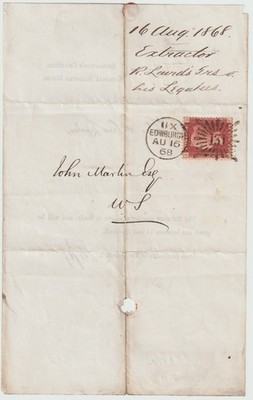 16 Aug. 1868.
Extractor
R. Laird's Trs v.
his Legatees.
UX
EDINBURGH
AU 16
68
John Martin Esq
W S